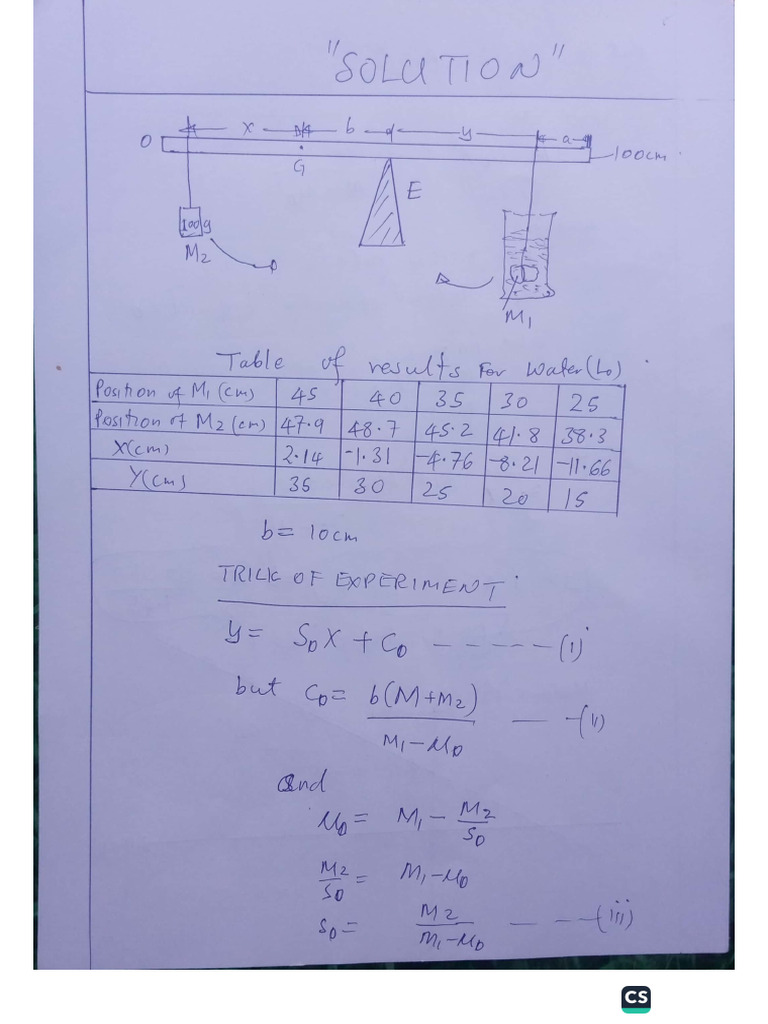 "SOLUTION"
x b y a
O G 100cm
E
100g
M2
M1
Table of results For Water (Lo)
Position of M1 (cm) 45 40 35 30 25
Position of M2 (cm) 47.9 48.7 45.2 41.8 38.3
X(cm) 2.14 -1.31 -4.76 -8.21 -11.66
Y(cm) 35 30 25 20 15
b = 10cm
TRICK OF EXPERIMENT
y = S0 X + C0 ----- (i)
but C0 = b(M+M2) / M1-µ0 --- (ii)
and
µ0 = M1 - M2/S0
M2/S0 = M1-µ0
S0 = M2 / M1-µ0 ---- (iii)
CS